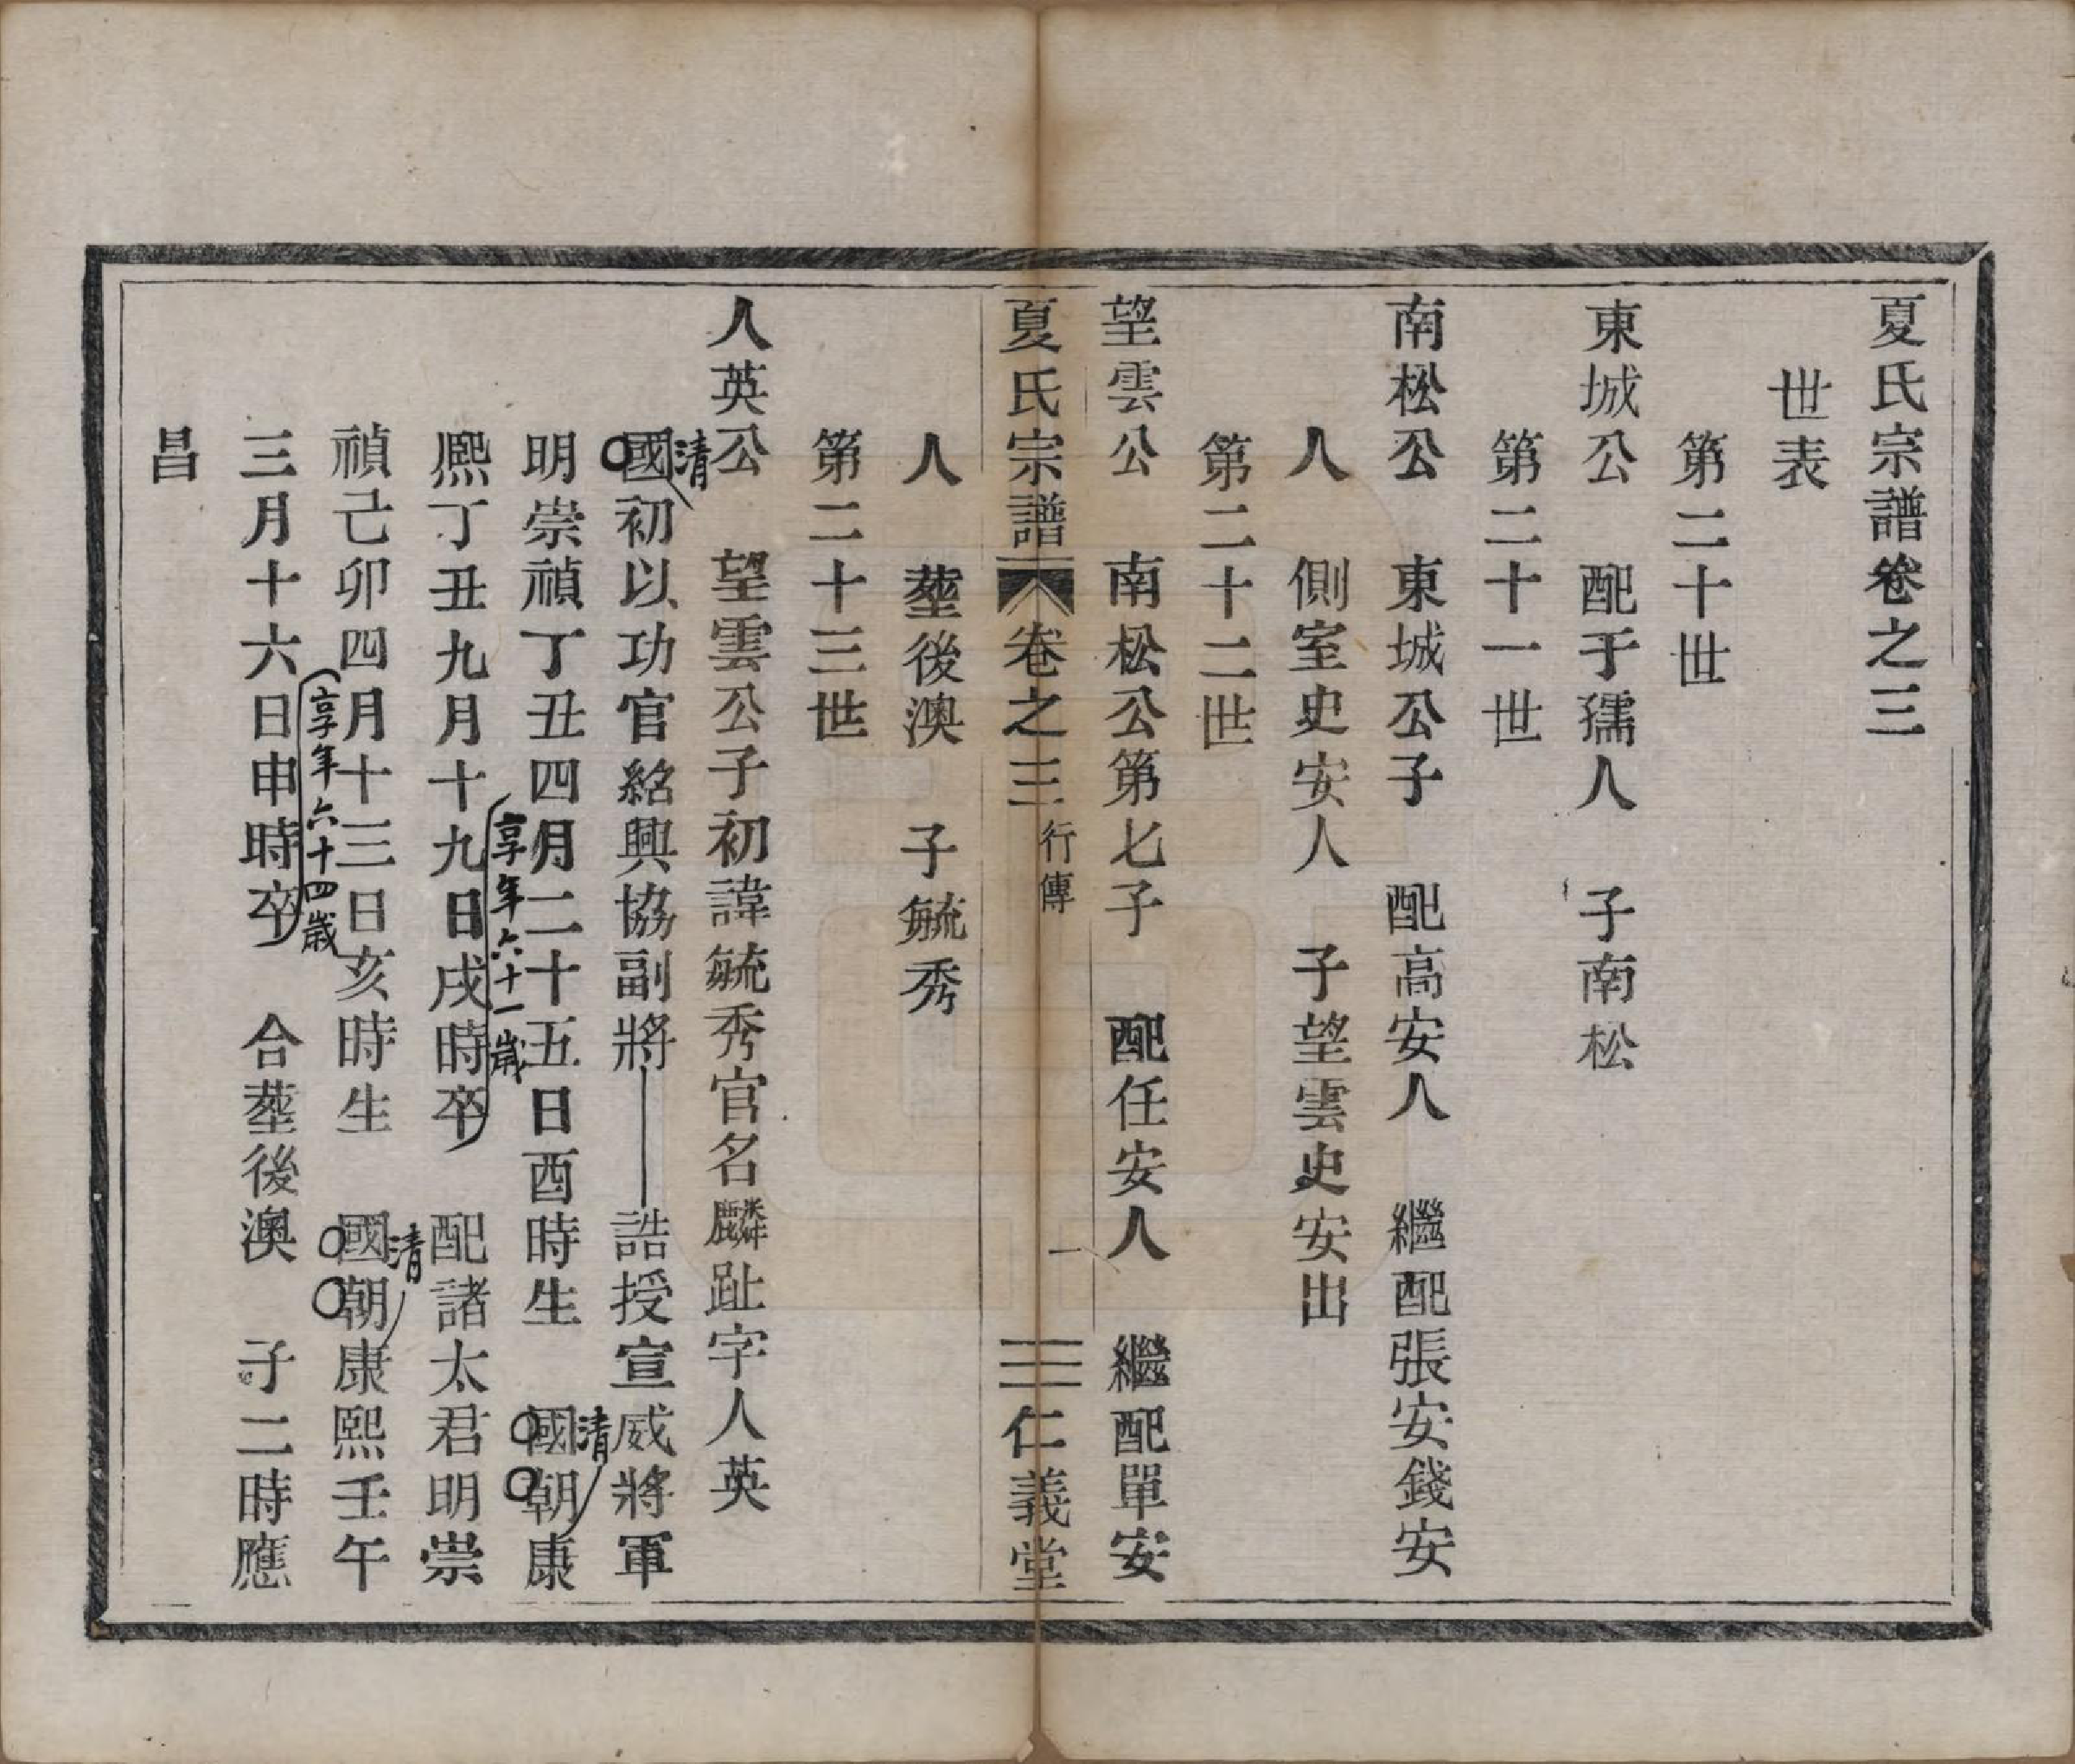 夏氏宗譜卷之三
世表
第二十世
東城公　配于孺人　子南松
第二十一世
南松公　東城公子　配高安人　繼配張安錢安
人　側室史安人　子望雲史安出
第二十二世
望雲公　南松公第七子　配任安人　繼配單安
夏氏宗譜　卷之三　行傳　一　仁義堂
人　塟後澳　子毓秀
第二十三世
人英公　望雲公子初諱毓秀官名麟趾字人英
清
國初以功官紹興協副將　誥授宣威將軍
明崇禎丁丑四月二十五日酉時生　國朝康
清
享年六十一歲
熈丁丑九月十九日戌時卒　配諸太君明崇
禎己卯四月十三日亥時生　國朝康熙壬午
清
享年六十四歲
三月十六日申時卒　合塟後澳　子二時應
昌